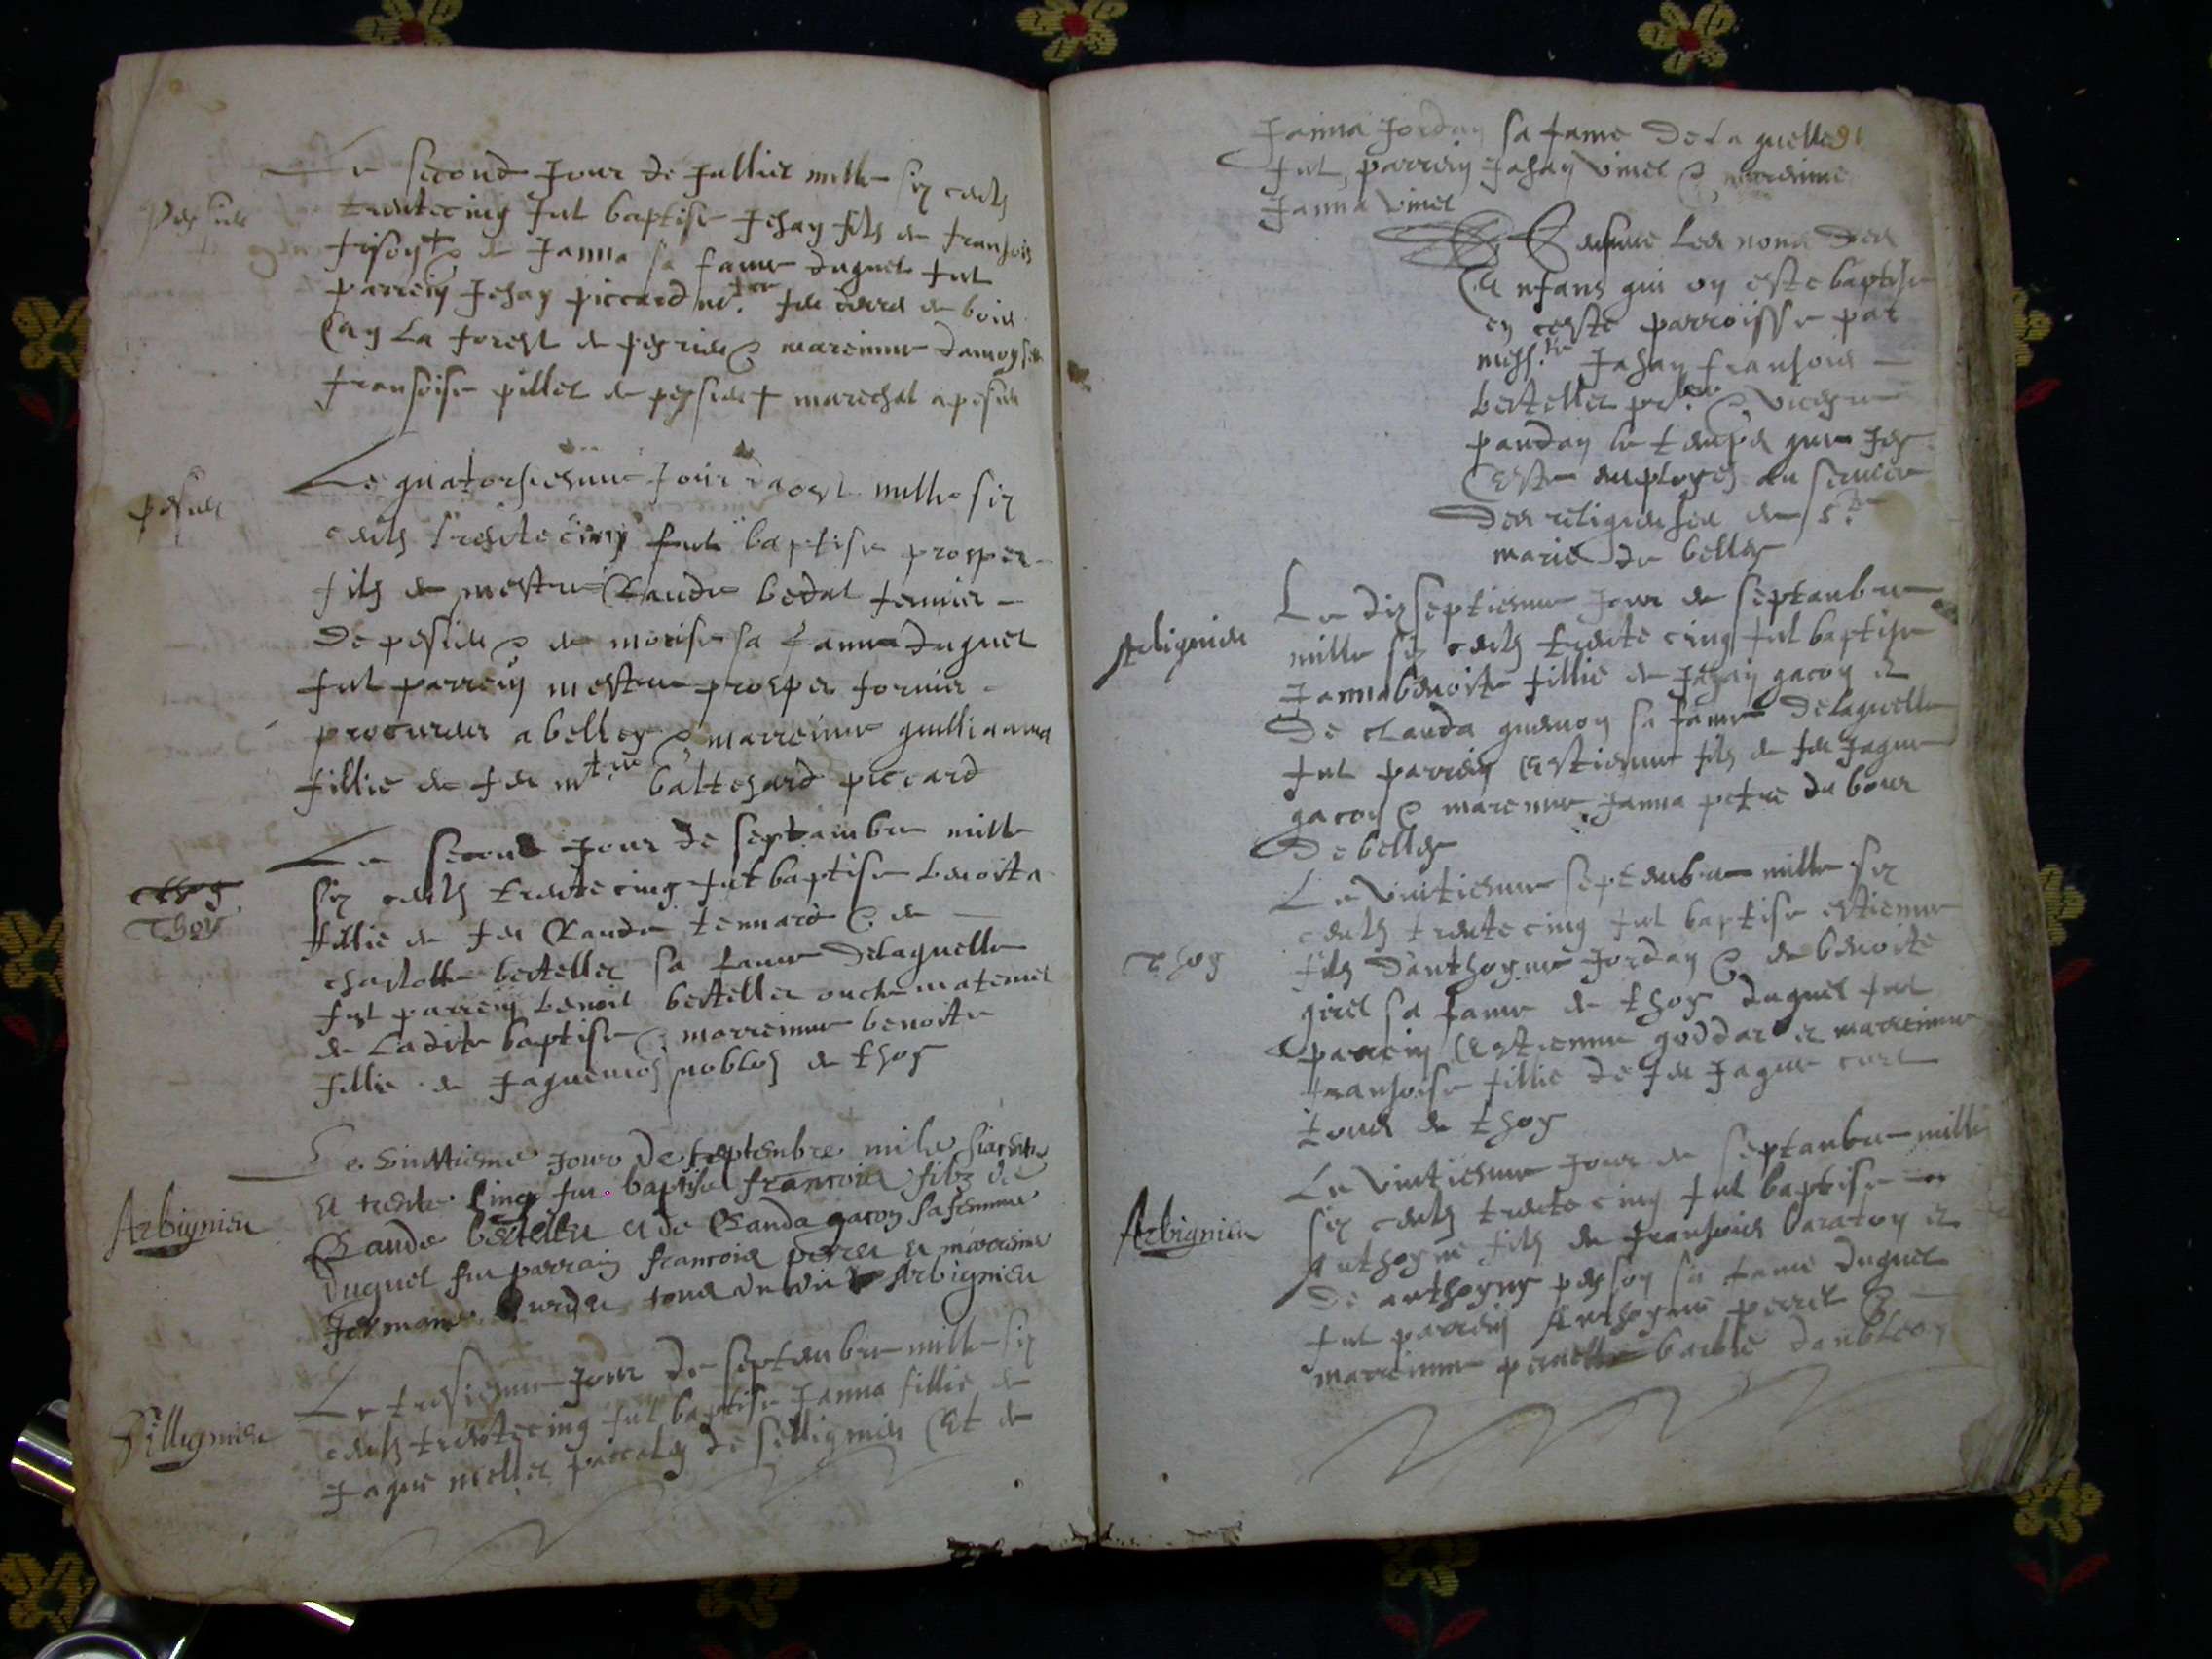 Le second jour de jullict mille six cents
Pesieu
trentecinq fut baptise Jehan filz de fransois
frison + & de Janna sa fame duquel fut
parrein Jehan piccard
la forest de & mareinne damoyselle
fransoise pillet de + marechal a pesieu
Le quatorsiesme jour daost mille six
pesieu
cents trentecinq fut baptise prosper
filz de mestre Claude bedat fermier
de pesieu & de sa famma duquel
fut parrein mestre prosper fornier
procureur a belley & marreinne guillianma
fillie de feu mtre baltesard piccard
Le second jour de septambre mille
thoy
Thoy
six cents trentecinq fut baptise benoita
fillie de feu Claude tennard & de
charlotte bertellet sa fame delaquelle
fut parrein benoit bertellet oncle maternel
de ladite baptise & marreinne benoite
fillie de de thoy
Le vintiesme jour de septembre mile siacents
Arbignieu
et trente sinq fut baptisé francois filz de
Claude bertellet et de Clauda gacon sa femme
duquel fut parrain francois perret et marraine
tous dudit Arbignieu
Le tresiesme jour de septembre mille six
Sillignieu
cents trentecinq fut baptise Janna fillie de
Jaque mellet de sillignieu Et de
Janna Jordan sa fame delaquelle
fut parrein Jahan vinet & marreinne
Janna vinet
Sensuive les noms des
Enfans qui on este baptise
en ceste parroisse par
mess.re Jahan fransois
bertellet pbre & viccere
pandan le temps que jey
Este employes au service
des religieuses de s.te
marie de belley
Le disseptiesme jour de septanbre
Arbignieu
mille six cents trentecinq fut baptise
Jannabenoite fillie de Jahan gacon et
de clauda guenon sa fame delaquelle
fut parrein Estienne filz de feu Jaque
gacon & mareinne Janna petre du bour
de belley
Le vintiesme septenbre mille six
cents trentecinq fut baptise estienne
Thoy
filz danthoyne Jordan & de benoite
giret sa fame de thoy duquel fut
parrein Estienne goddar et marreinne
fransoise fillie de feu Jaque
tous de thoy
Le vintiesme jour de septanbre mille
six cents trentecinq fut baptise
Arbignieu
Anthoyne filz de fransois baraton et
de anthoyne sa fame duquel
fut parrein Anthoyne perret &
marreinne pernette barbe